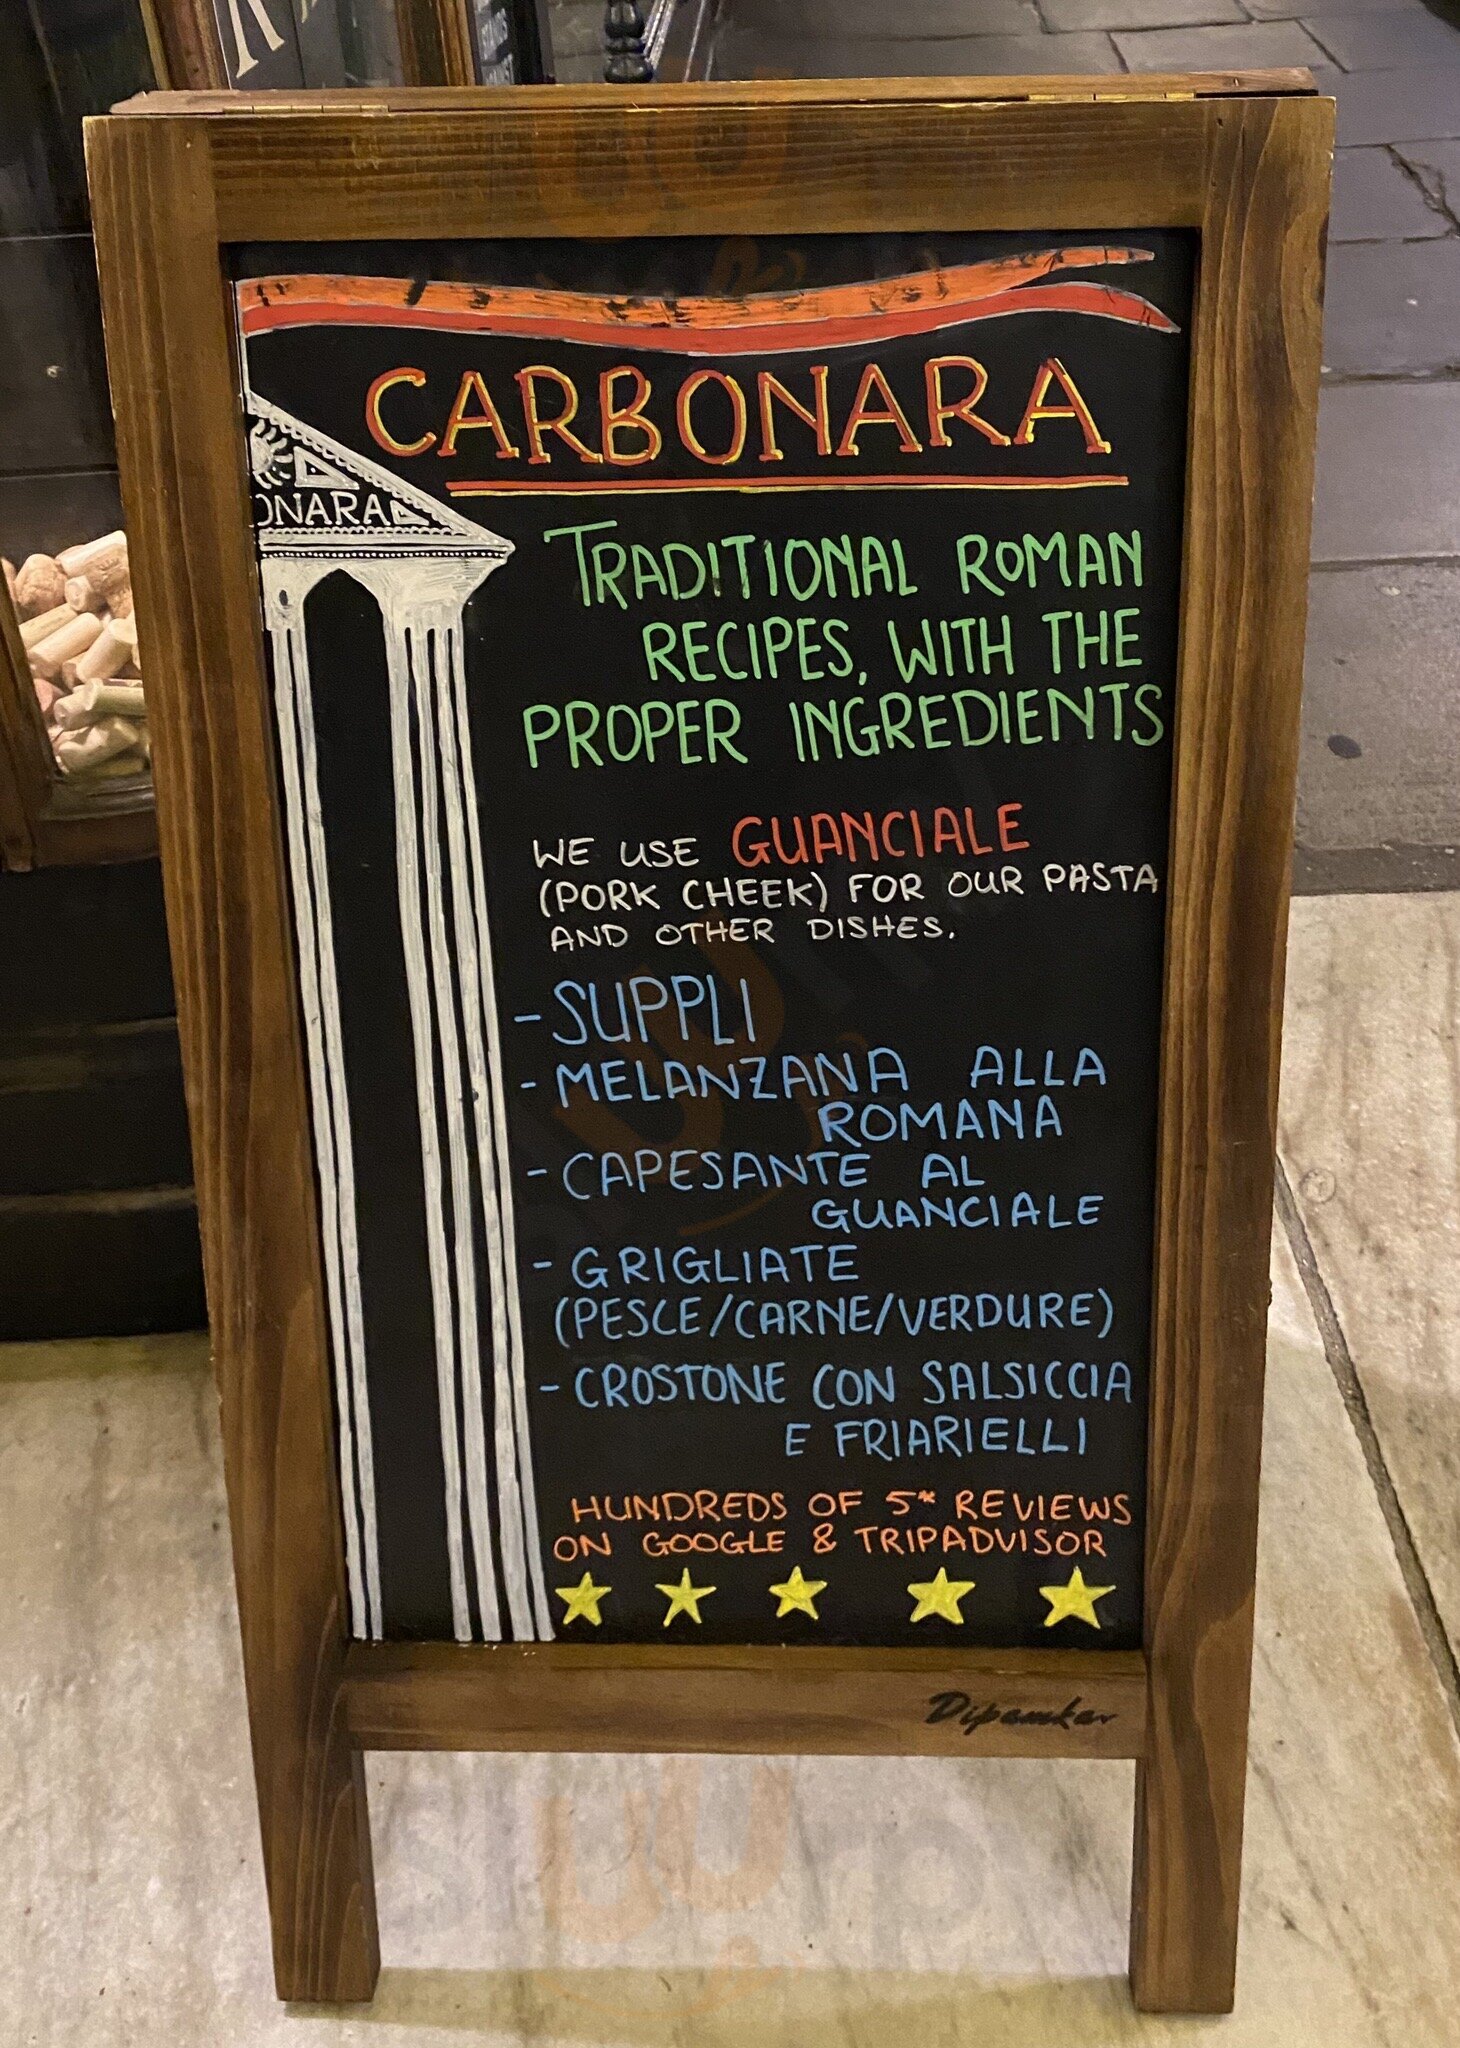 CARBONARA
ONARA
TRADITIONAL ROMAN
RECIPES, WITH THE
PROPER INGREDIENTS
WE USE GUANCIALE
(PORK CHEEK) FOR OUR PASTA
AND OTHER DISHES.
- SUPPLI
- MELANZANA ALLA
ROMANA
- CAPESANTE AL
GUANCIALE
- GRIGLIATE
(PESCE/CARNE/VERDURE)
- CROSTONE CON SALSICCIA
E FRIARIELLI
HUNDREDS OF 5* REVIEWS
ON GOOGLE & TRIPADVISOR